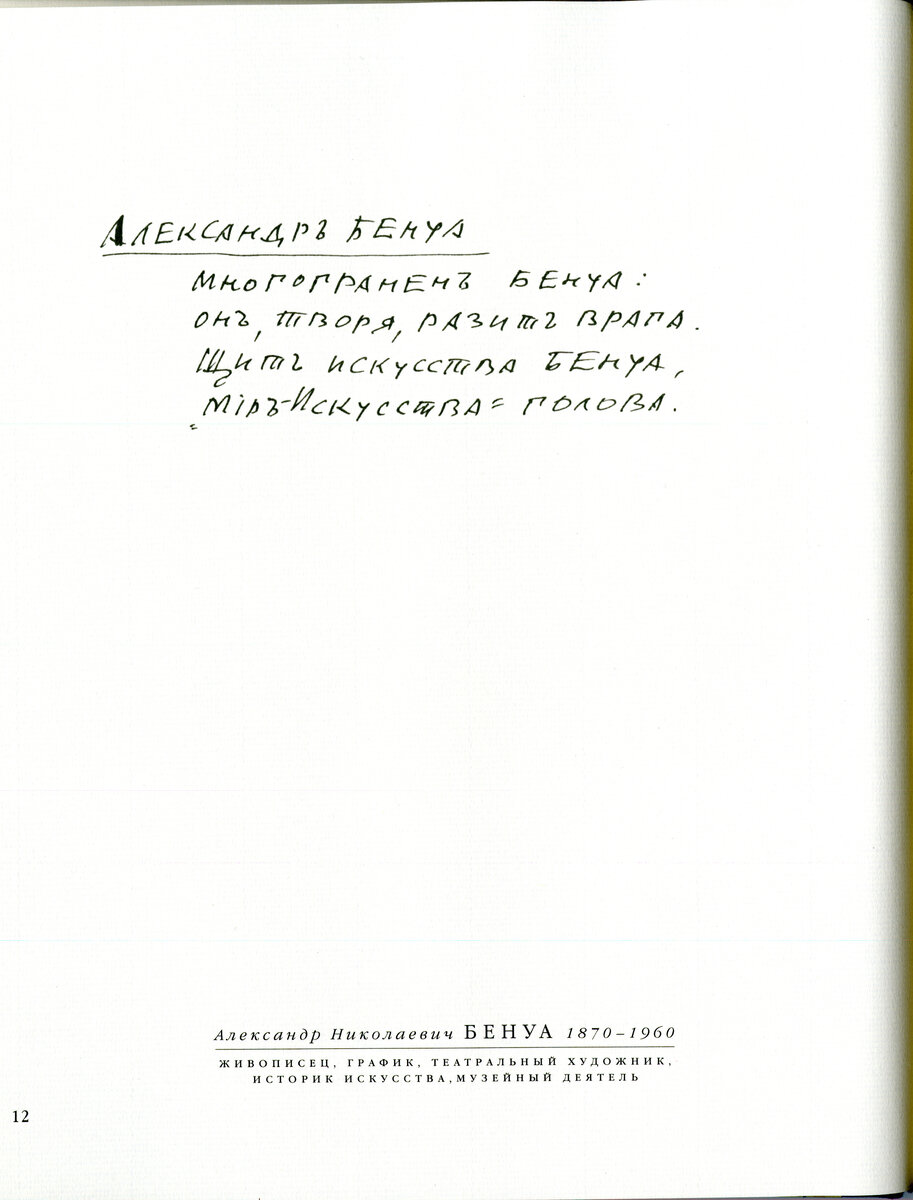 Александръ Бенуа
Многограненъ Бенуа:
онъ, творя, разитъ врага.
Щитъ искусства Бенуа,
„Мiръ-Искусства“ голова.
Александр Николаевич БЕНУА 1870–1960
ЖИВОПИСЕЦ, ГРАФИК, ТЕАТРАЛЬНЫЙ ХУДОЖНИК,
ИСТОРИК ИСКУССТВА, МУЗЕЙНЫЙ ДЕЯТЕЛЬ
12